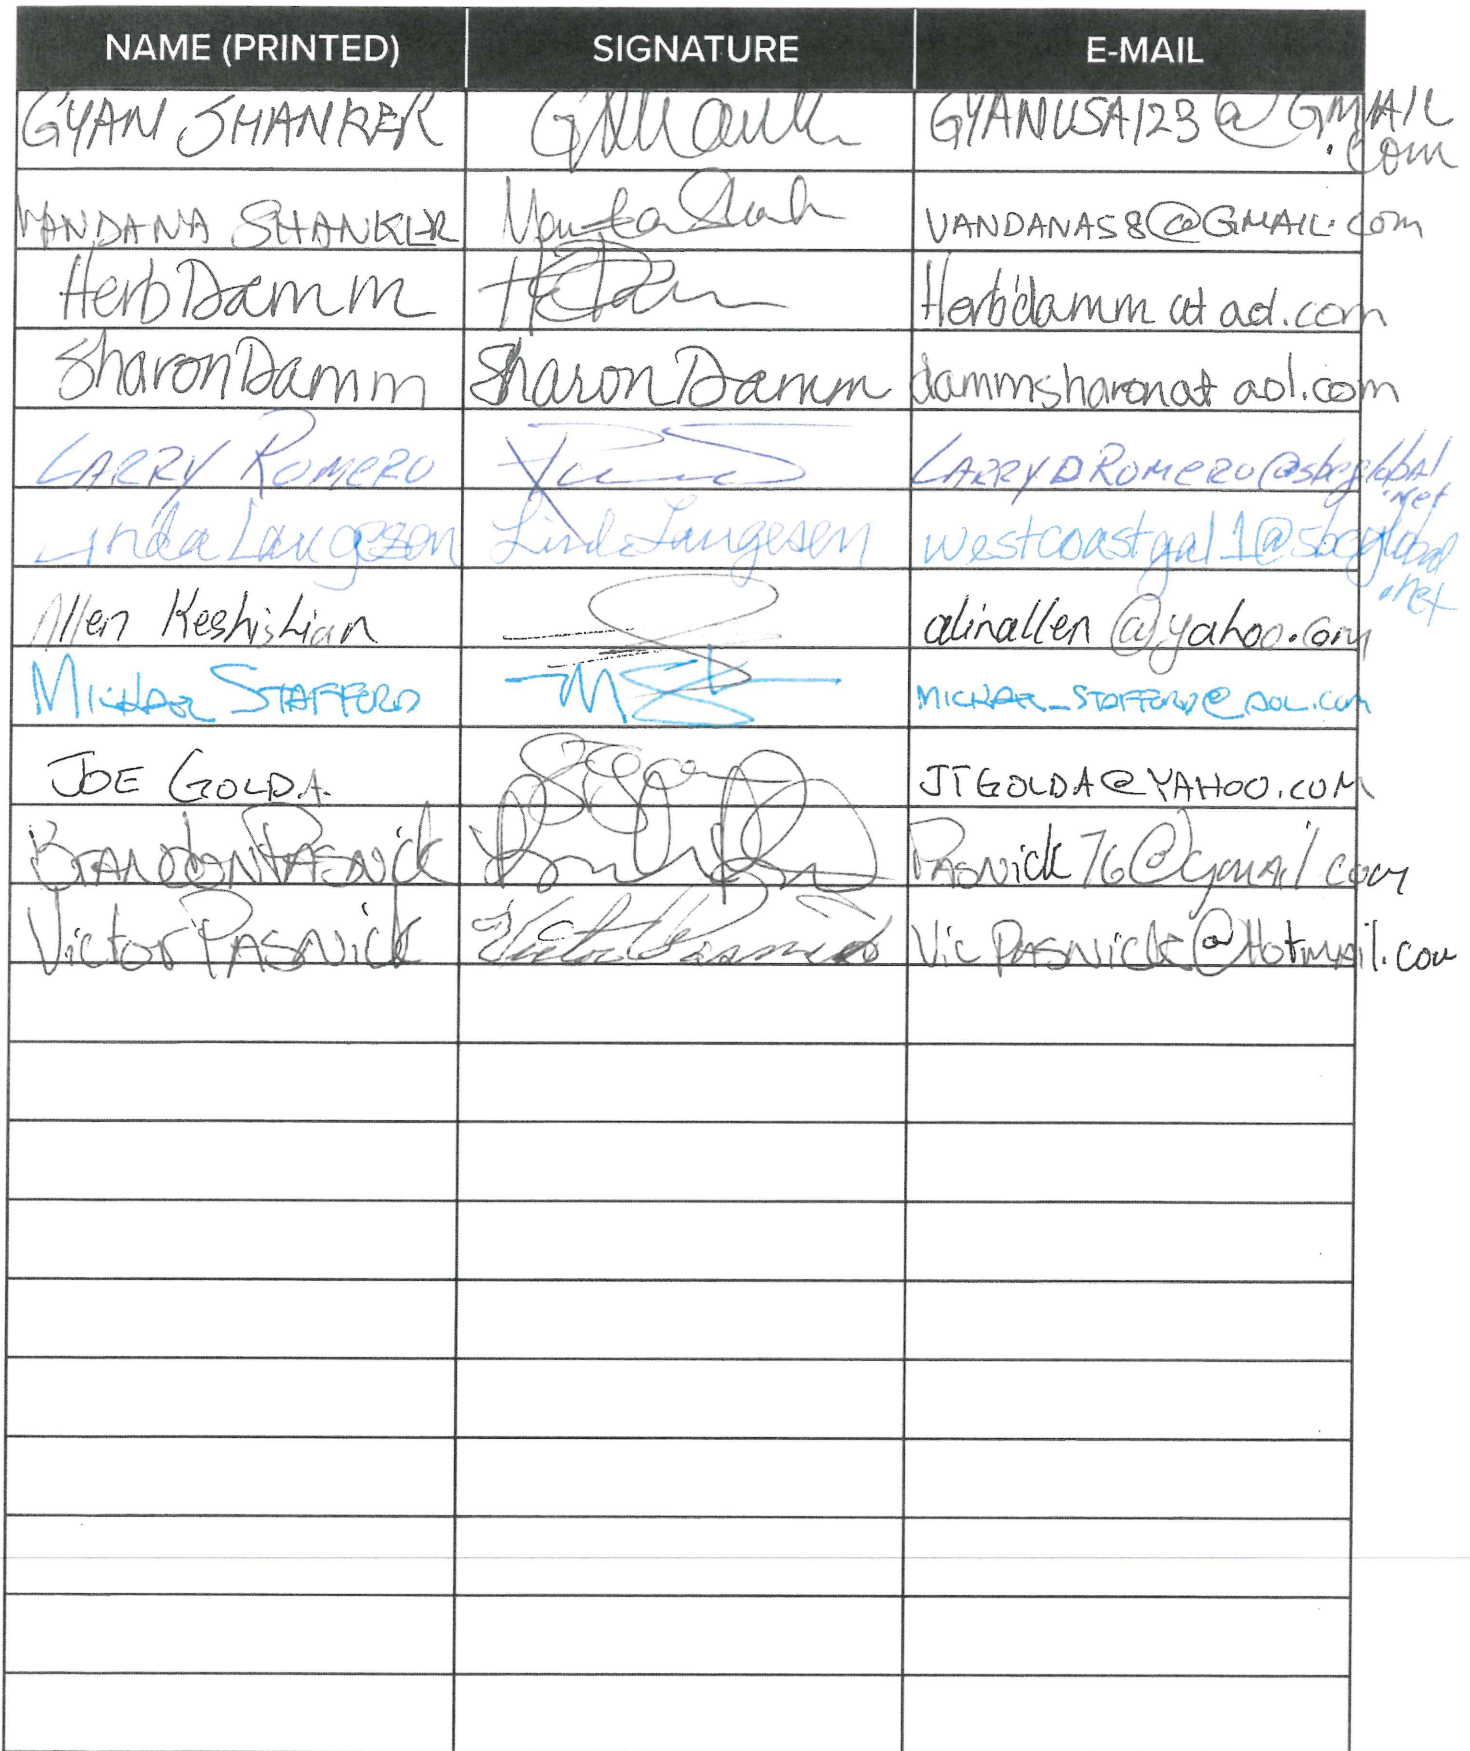 NAME (PRINTED) SIGNATURE E-MAIL
GYAN SHANKER GYANUSA123@GMAIL
.com
VANDANA SHANKER VANDANA58@GMAIL.com
Herb Damm Herbdamm at aol.com
Sharon Damm Sharon Damm dammsharon at aol.com
LARRY ROMERO LARRYDROMERO@sbcglobal
.net
Linda Laugesen Linda Laugesen westcoastgal1@sbcglobal
.net
Allen Keshishian alinallen@yahoo.com
MICHAEL STAFFORD MICHAEL_STAFFORD@AOL.com
JOE GOLDA JTGOLDA@YAHOO.COM
BRANDON PASNICK PASNick76@gmail.com
Victor PASNick Victor Pasnick Vic PASNick@Hotmail.com